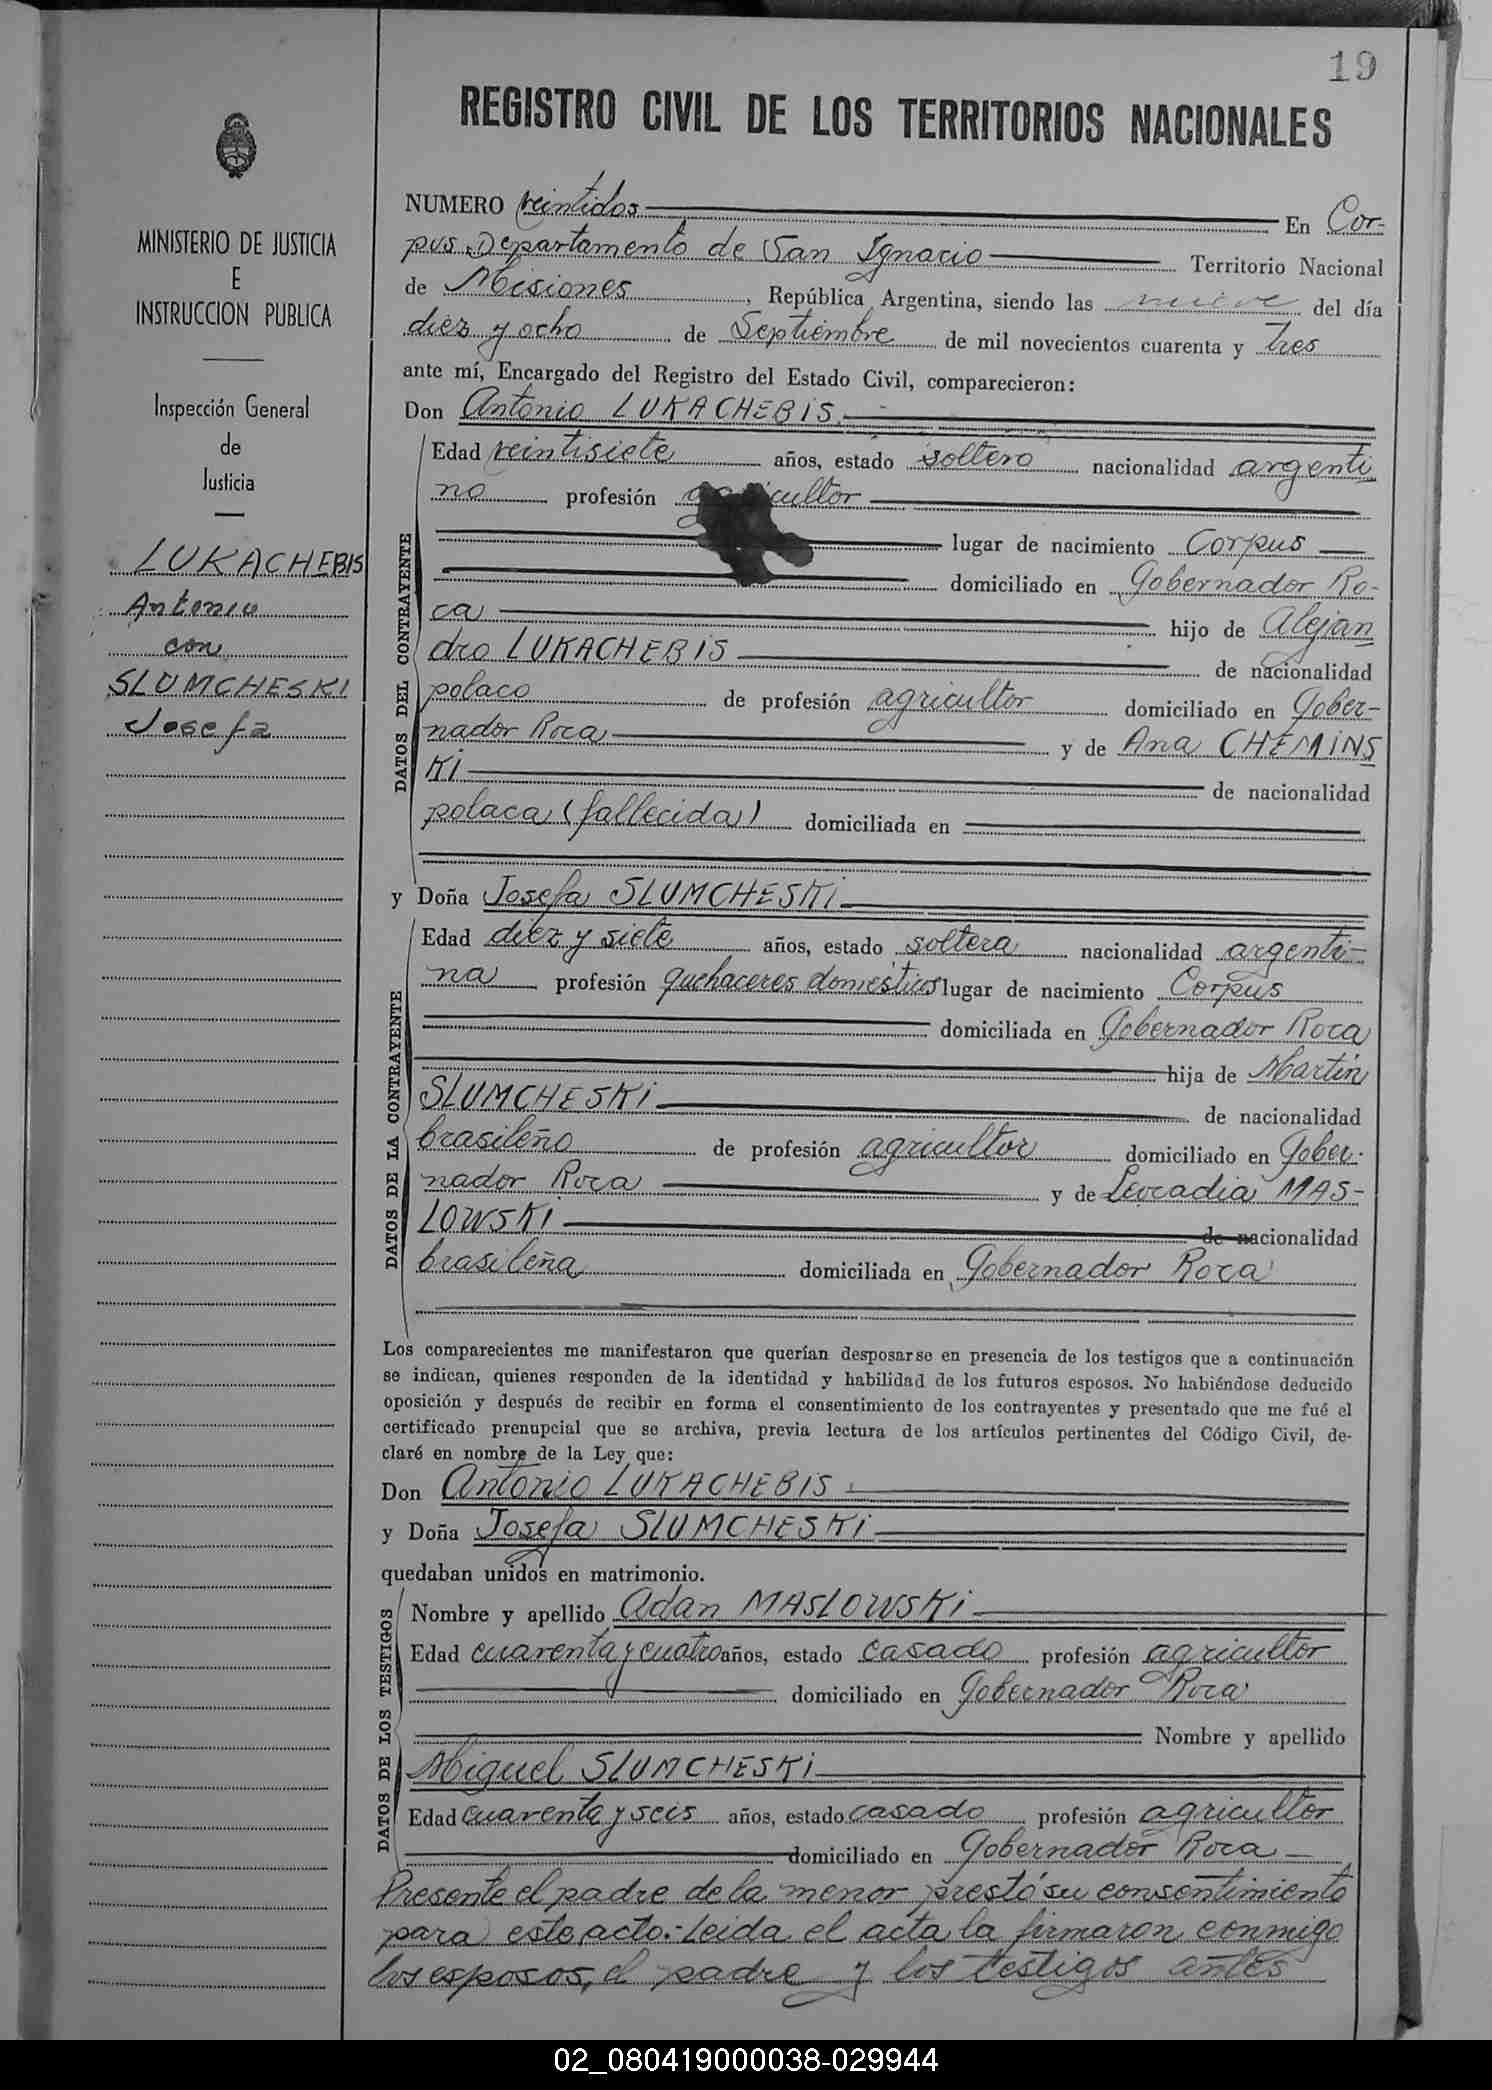 19
REGISTRO CIVIL DE LOS TERRITORIOS NACIONALES
MINISTERIO DE JUSTICIA
E
INSTRUCCION PUBLICA
Inspección General
de
Justicia
LUKACHEBIS
Antonio
con
SLUMCHESKI
Josefa
NUMERO veintidos En Cor-
pus. Departamento de San Ignacio Territorio Nacional
de Misiones, República Argentina, siendo las nueve del día
diez y ocho de Septiembre de mil novecientos cuarenta y tres
ante mí, Encargado del Registro del Estado Civil, comparecieron:
Don Antonio LUKACHEBIS.
DATOS DEL CONTRAYENTE
Edad veintisiete años, estado soltero nacionalidad argenti
no profesión agricultor
lugar de nacimiento Corpus
domiciliado en Gobernador Ro-
ca hijo de Alejan
dro LUKACHEBIS de nacionalidad
polaco de profesión agricultor domiciliado en Gober-
nador Roca y de Ana CHEMINS
KI de nacionalidad
polaca (fallecida) domiciliada en
y Doña Josefa SLUMCHESKI
DATOS DE LA CONTRAYENTE
Edad diez y siete años, estado soltera nacionalidad argenti-
na profesión quehaceres domésticos lugar de nacimiento Corpus
domiciliada en Gobernador Roca
hija de Martin
SLUMCHESKI de nacionalidad
brasileño de profesión agricultor domiciliado en Gober-
nador Roca y de Leocadia MAS-
LOWSKI de nacionalidad
brasileña domiciliada en Gobernador Roca
Los comparecientes me manifestaron que querían desposarse en presencia de los testigos que a continuación
se indican, quienes responden de la identidad y habilidad de los futuros esposos. No habiéndose deducido
oposición y después de recibir en forma el consentimiento de los contrayentes y presentado que me fué el
certificado prenupcial que se archiva, previa lectura de los artículos pertinentes del Código Civil, de-
claré en nombre de la Ley que:
Don Antonio LUKACHEBIS
y Doña Josefa SLUMCHESKI
quedaban unidos en matrimonio.
DATOS DE LOS TESTIGOS
Nombre y apellido Adan MASLOWSKI
Edad cuarenta y cuatro años, estado casado profesión agricultor
domiciliado en Gobernador Roca
Nombre y apellido
Miguel SLUMCHESKI
Edad cuarenta y seis años, estado casado profesión agricultor
domiciliado en Gobernador Roca
Presente el padre de la menor prestó su consentimiento
para este acto.- Leida el acta la firmaron conmigo
los esposos, el padre y los testigos antes
02_080419000038-029944